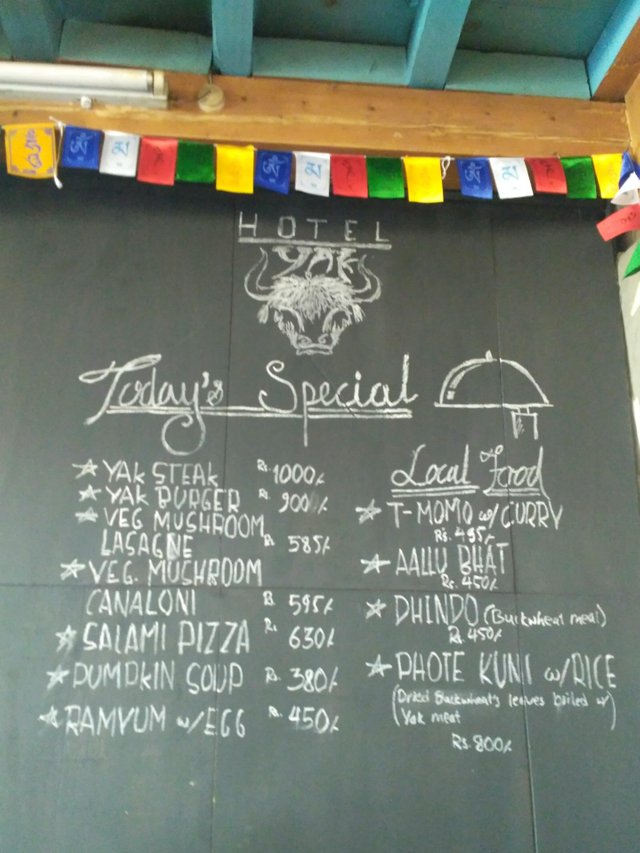 HOTEL
YAK
Today's Special
★ YAK STEAK Rs. 1000/.
★ YAK BURGER Rs. 900/.
★ VEG MUSHROOM
LASAGNE Rs. 585/.
★ VEG. MUSHROOM
CANALONI Rs. 595/.
★ SALAMI PIZZA Rs. 630/.
★ PUMPKIN SOUP Rs. 380/.
★ RAMYUM w/EGG Rs. 450/.
Local Food
★ T-MOMO w/ CURRY
Rs. 495/.
★ AALLU BHAT
Rs. 450/.
★ DHINDO (Buckwheat meal)
Rs. 450/.
★ PHOTE KUNI w/RICE
(Dried Buckwheat's leaves boiled w/
Yak meat)
Rs. 800/.